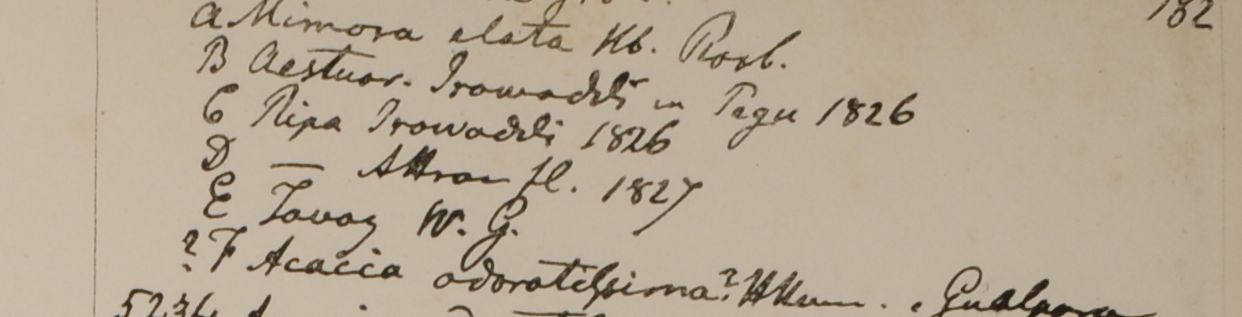 182
A Mimosa elata Hb. Roxb.
B Aestuar. Irawaddi in Pegu 1826
C Ripa Irawaddi 1826
D — Attran fl. 1827
E Tavoy W. G.
? F Acacia odoratissima? . Gualpara
5236